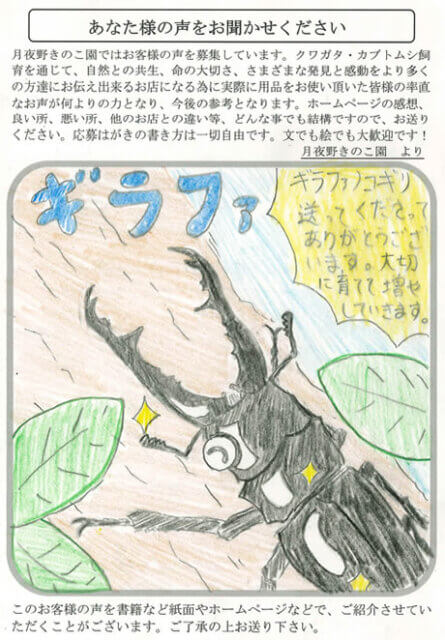 あなた様の声をお聞かせください
月夜野きのこ園ではお客様の声を募集しています。クワガタ・カブトムシ飼
育を通じて、自然との共生、命の大切さ、さまざまな発見と感動をより多く
の方達にお伝え出来るお店になる為に実際に用品をお使い頂いた皆様の率直
なお声が何よりの力となり、今後の参考となります。ホームページの感想、
良い所、悪い所、他のお店との違い等、どんな事でも結構ですので、お送り
ください。応募はがきの書き方は一切自由です。文でも絵でも大歓迎です！
月夜野きのこ園　より
ギラファ
ギラファノコギリ
送ってくださって
ありがとうござ
います。大切
に育てて増や
していきます。
このお客様の声を書籍など紙面やホームページなどで、ご紹介させてい
ただくことがございます。ご了承の上お送り下さい。